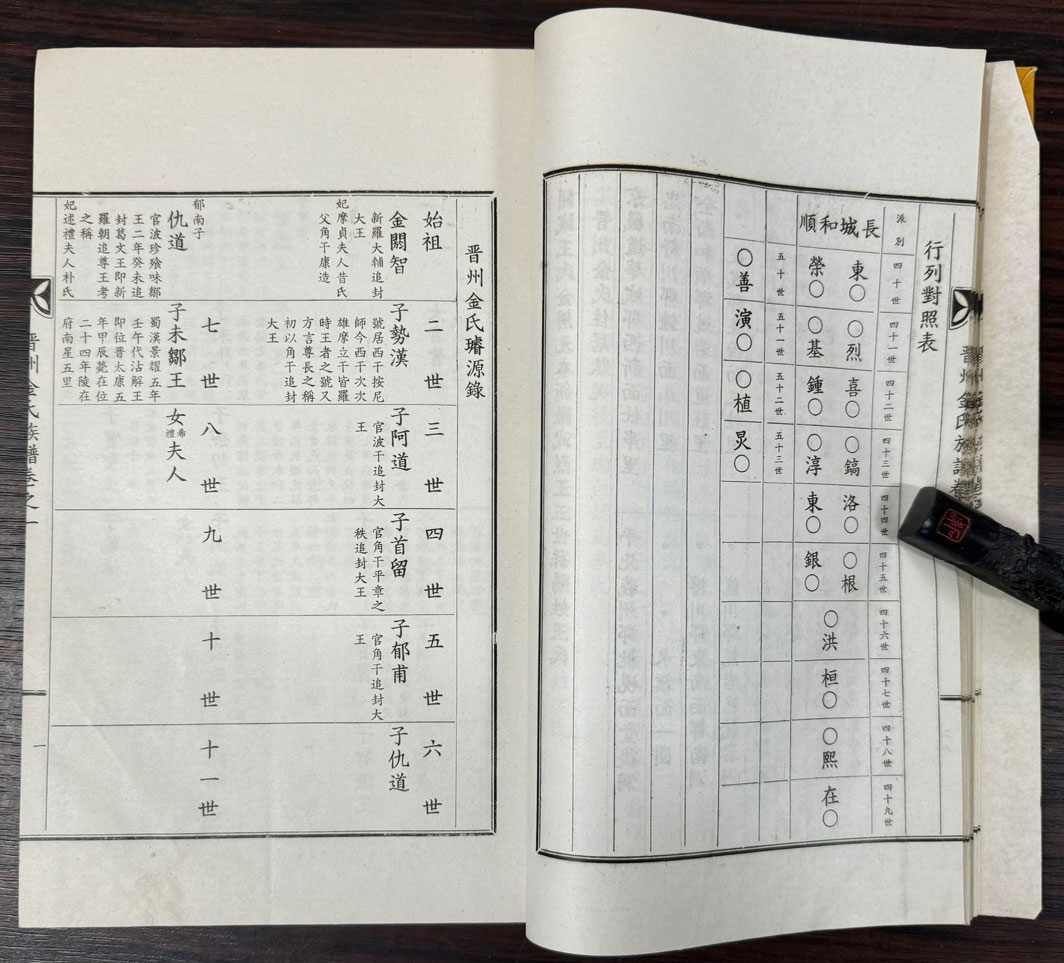 晋州金氏族譜卷
行列對照表
派別
四十世
四十一世
四十二世
四十三世
四十四世
四十五世
四十六世
四十七世
四十八世
四十九世
長城和順
東○
○烈
喜○
○鎬
洛○
○根
榮○
○基
鍾○
○淳
東○
銀○
○洪
桓○
○熙
在○
五十世
五十一世
五十二世
五十三世
○善
演○
○植
炅○
晋州金氏璿源錄
始祖
二世
三世
四世
五世
六世
金閼智
新羅大輔追封
大王
妃摩貞夫人昔氏
父角干康造
子勢漢
號居西干按尼
師今西干次次
雄摩立干皆羅
時王者之號又
方言尊長之稱
初以角干追封
大王
子阿道
官波干追封大
王
子首留
官角干平章之
秩追封大王
子郁甫
官角干追封大
王
子仇道
七世
八世
九世
十世
十一世
郁南子
仇道
官波珍飡味鄒
王二年癸未追
封葛文王即新
羅朝追尊王考
之稱
妃述禮夫人朴氏
子未鄒王
蜀漢景耀五年
壬午代沾解王
即位晋太康五
年甲辰薨在位
二十四年陵在
府南星五里
女希禮夫人
晋州金氏族譜卷之一
一